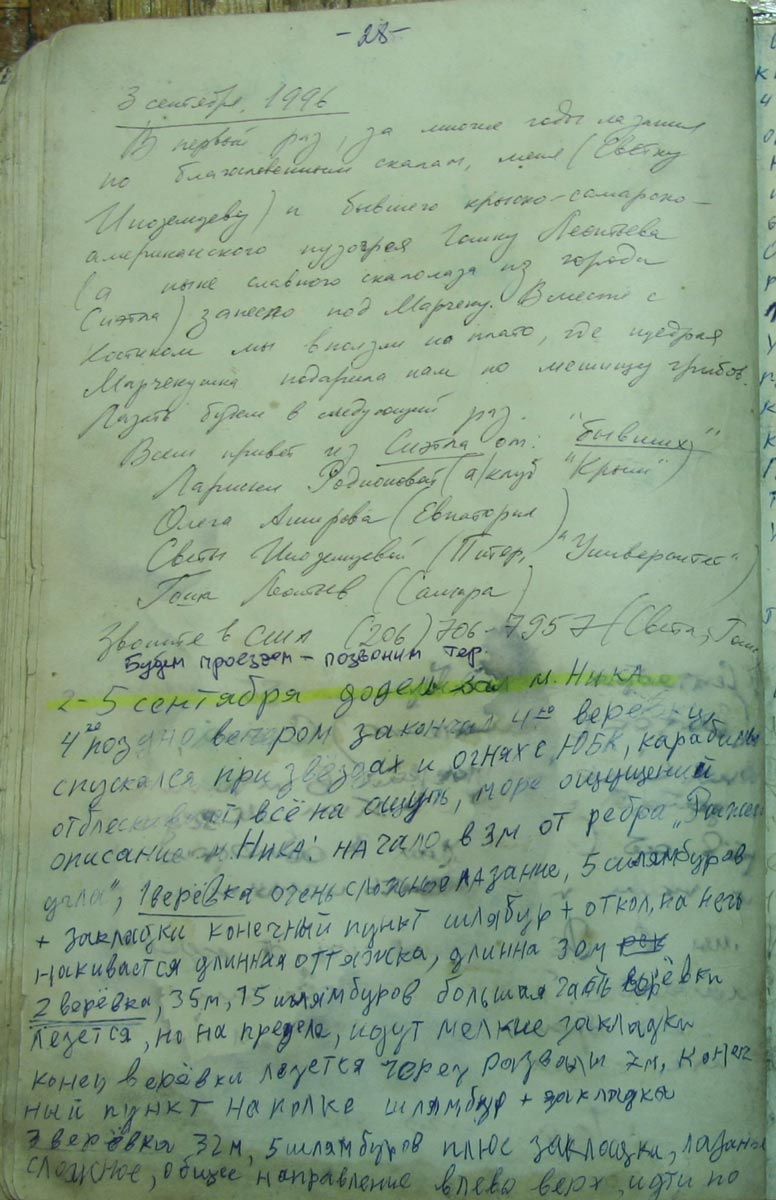 - 28 -
3 сентября, 1996
В первый раз, за многие годы лазания
по благословенным скалам, меня (Светку
Иноземцеву) и бывшего крыско-самарско-
американского пузогрея Гошку Леонтьева
(а ныне славного скалолаза из города
Сиэтла) занесло под Марчеку. Вместе с
Костиком мы вползли на плато, где щедрая
Марчекушка подарила нам по мешищу грибов.
Лазать будем в следующий раз.
Всем привет из Сиэтла от: "бывших"
Лариски Родионовой (а/клуб "Крым")
Олега Аширова (Евпатория)
Светы Иноземцевой (Питер, "Университет")
Гоша Леонтьев (Самара)
Звоните в США (206) 706-7957 (Света, Гоша
Будем проездом - позвоним
2-5 сентября м. Ника
4го поздно вечером закончил 4ю верёвку,
спускался при звёздах и огнях с ЮБК, карабины
отблескивают, всё на ощупь, море ощущений
описание м. Ника: начало в 3м от ребра
1 верёвка очень сложное лазание, 5 шлямбуров
+ закладки конечный пункт шлямбур + откол, на него
накивается длинная оттяжка, длинна 30м
2 верёвка, 35м, 15 шлямбуров большая часть верёвки
лезется, но на пределе, идут мелкие закладки
конец верёвки лезется через развалы 7м, конеч
ный пункт на полке шлямбур + закладка
3 верёвка 32м, 5 шлямбуров плюс закладки, лазанье
сложное, общее направление влево верх идти по